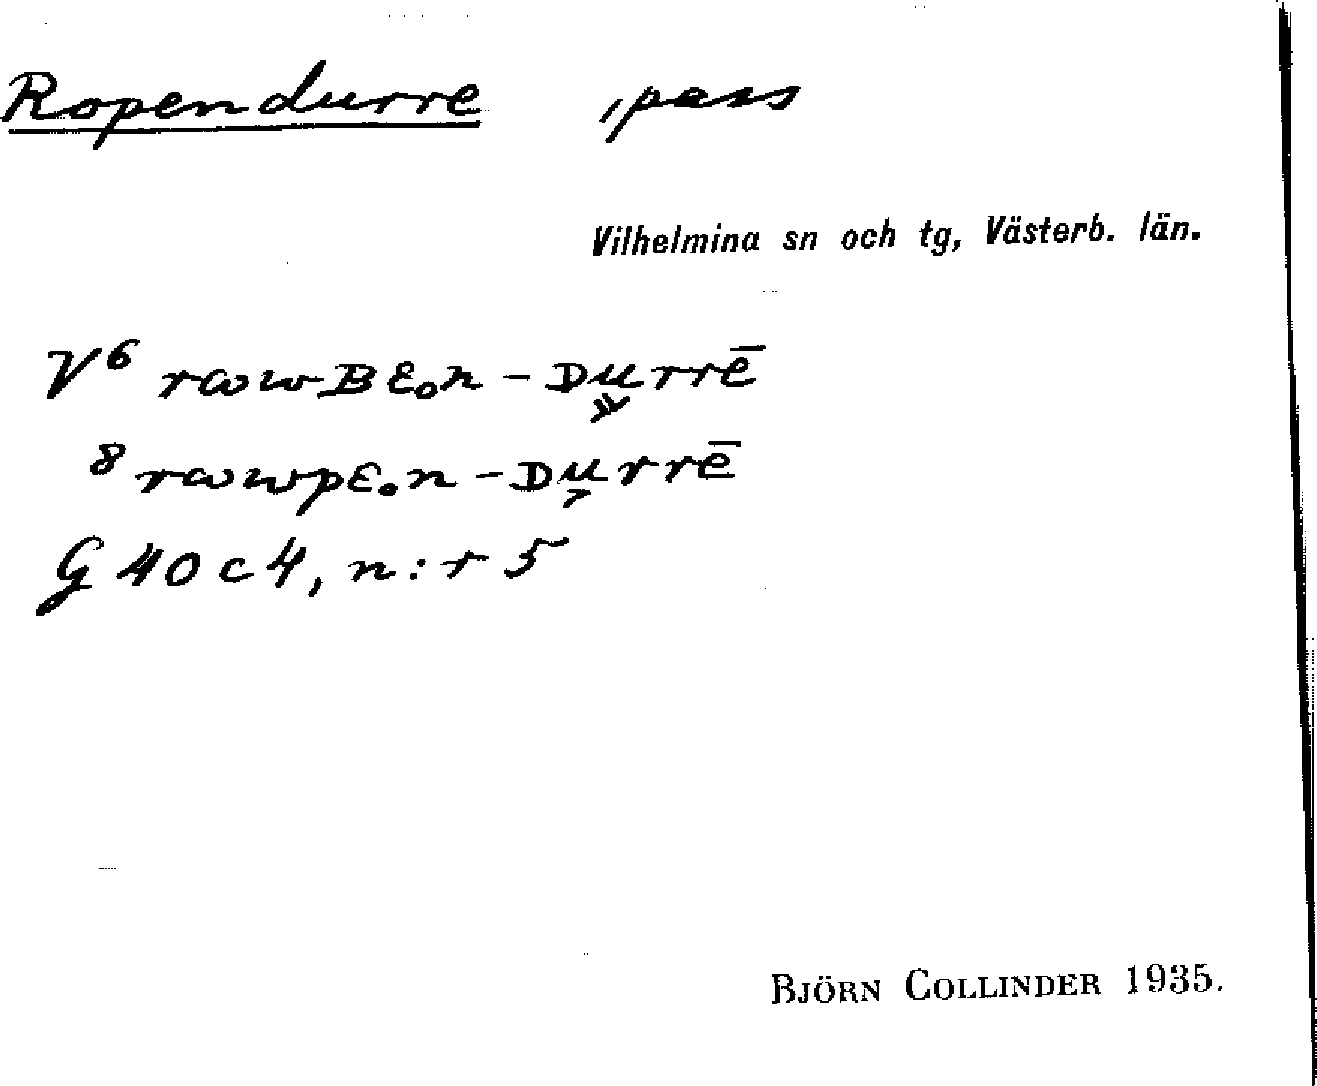 Ropendurre , pass
Vilhelmina sn och tg, Västerb. län.
V⁶ rωwBƐₒn - Du̬rrē
⁸ rωwpƐₒn - Du̬rrē
G 40 c 4, n:r 5
BJÖRN COLLINDER 1935.